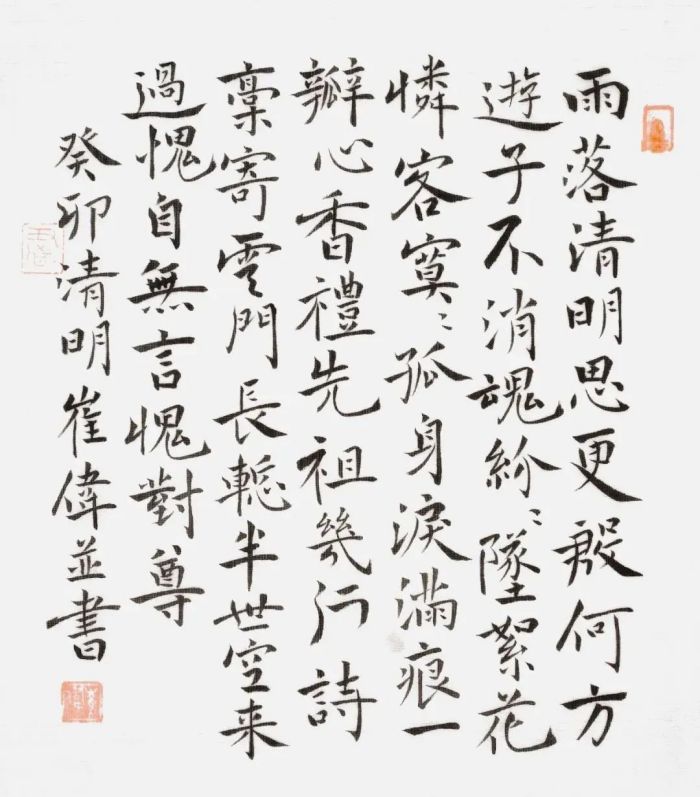 雨落清明思更殷何方
遊子不消魂紛〻墜絮花
憐客寞〻孤身淚滿痕一
瓣心香禮先祖幾行詩
稾寄雲門長慙半世空来
過愧自無言愧對尊
癸卯清明崔偉並書